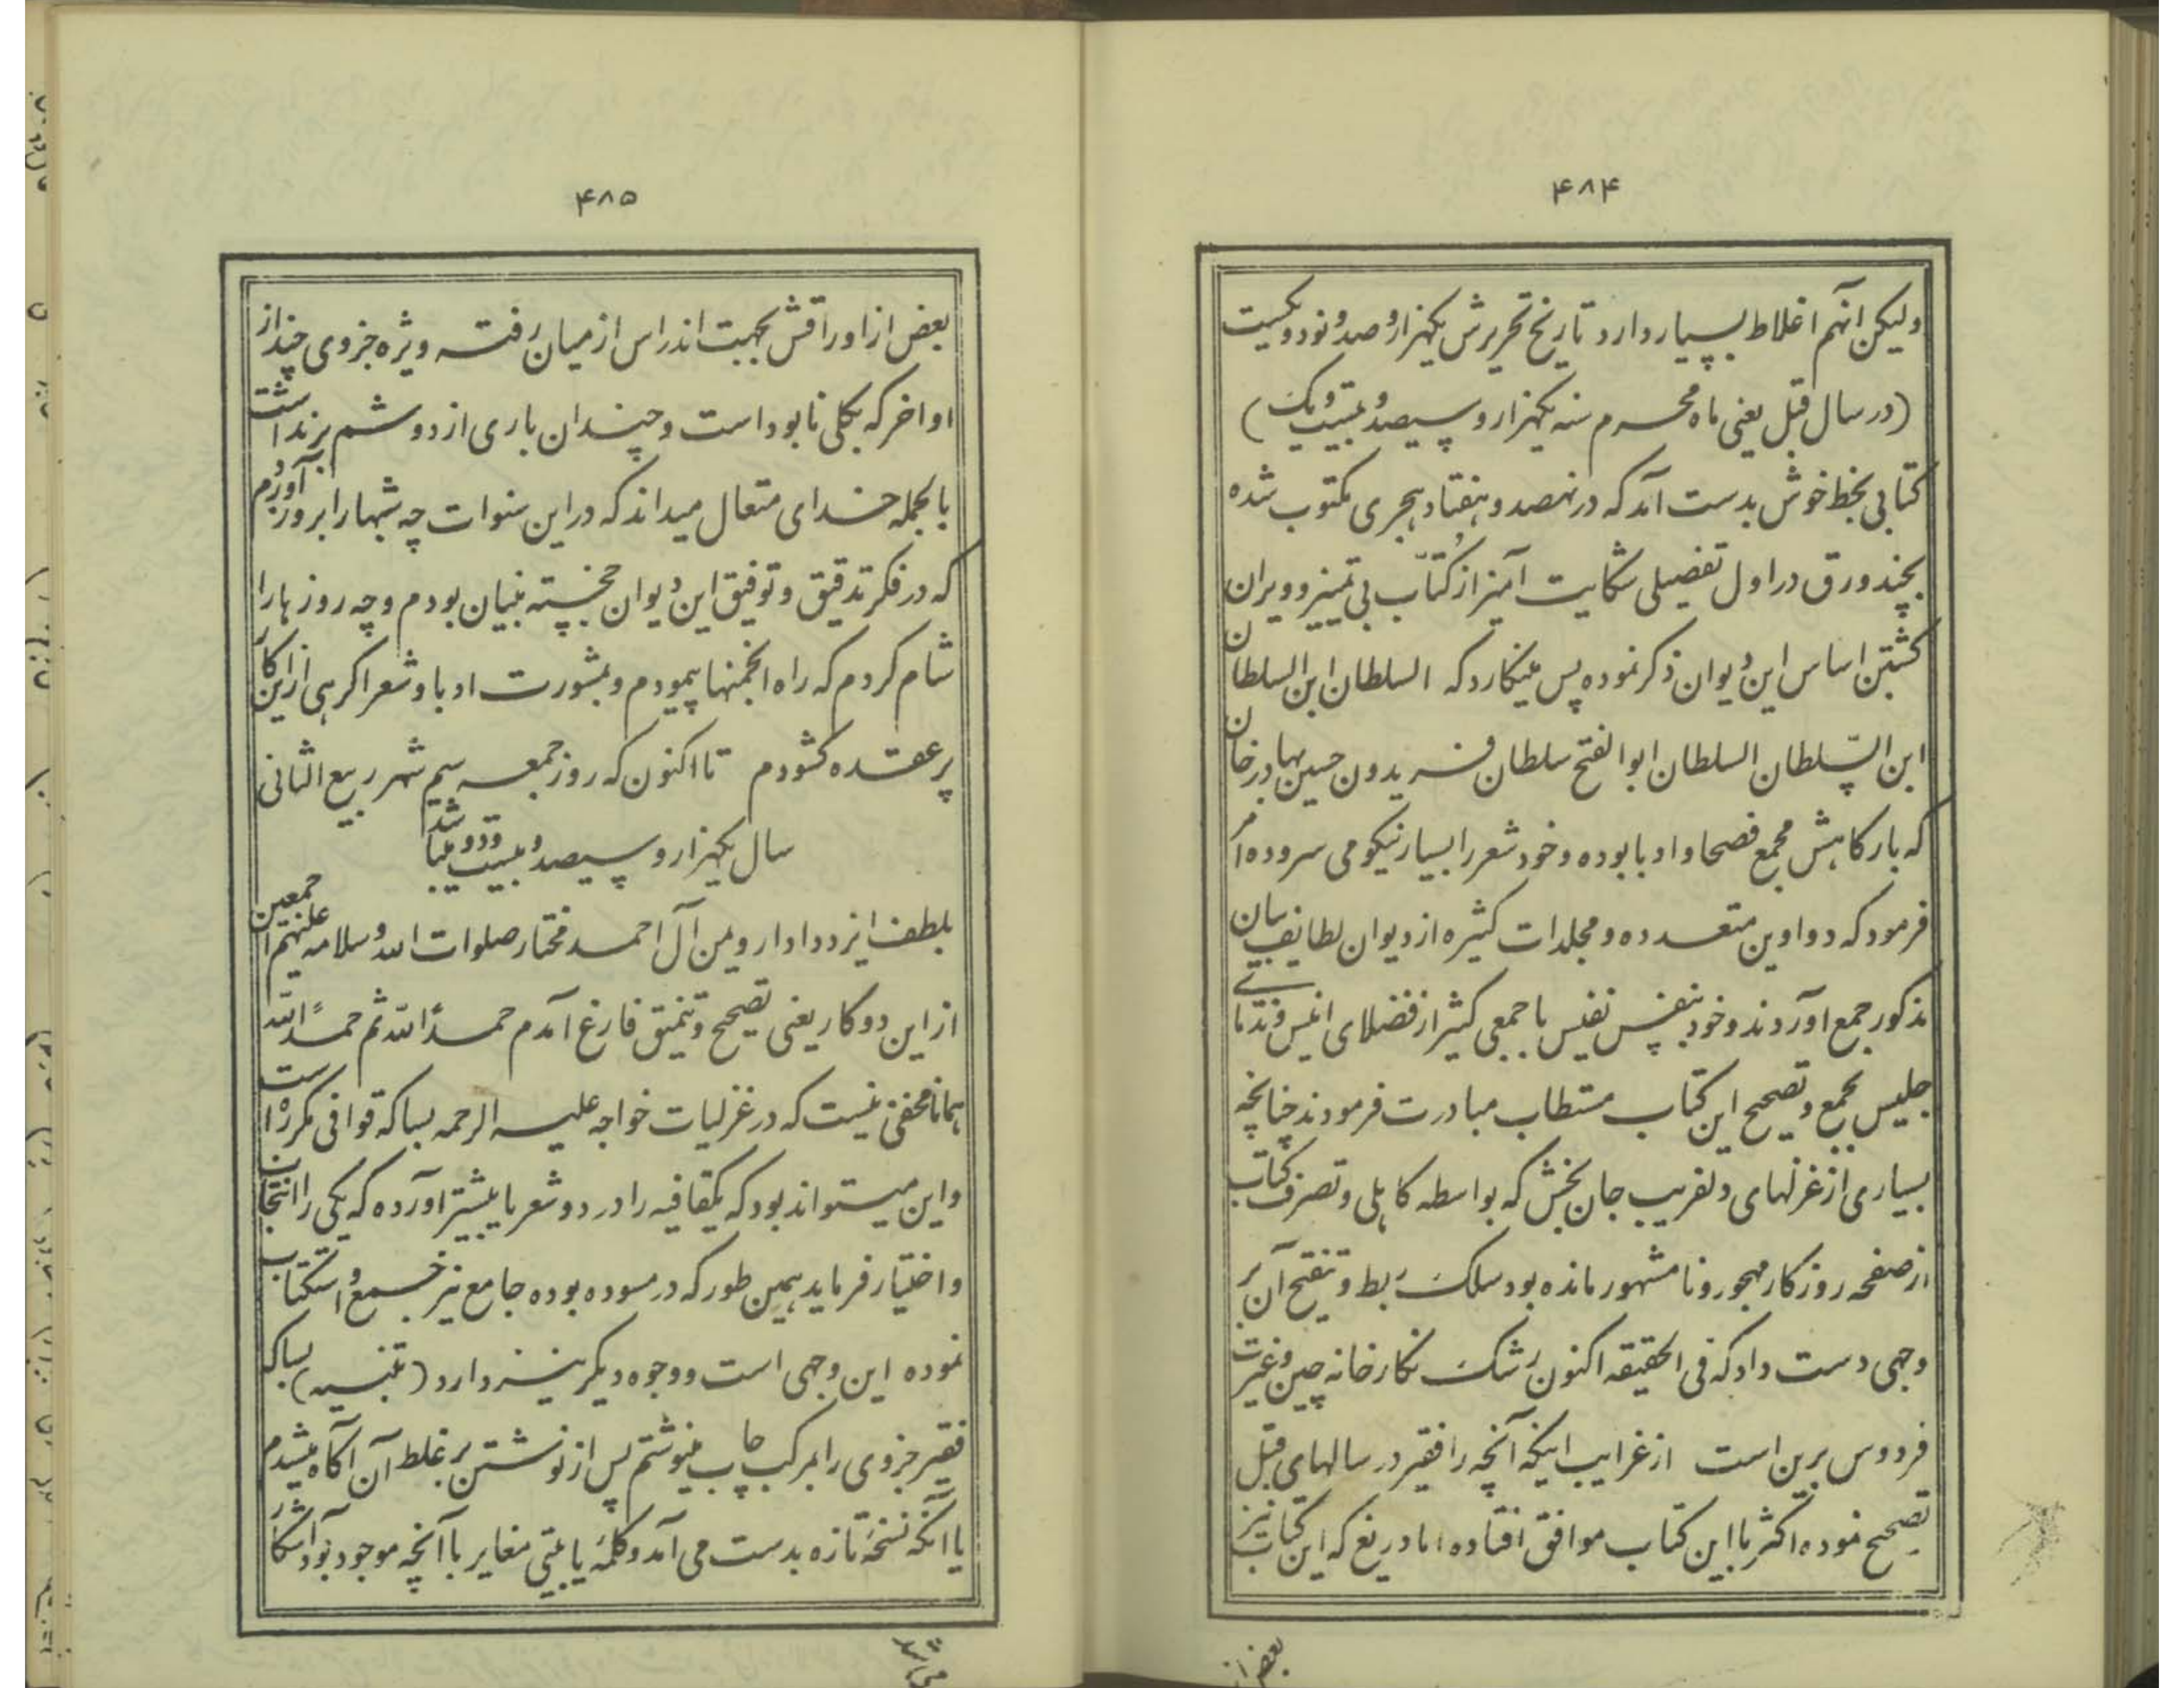 ۴۸۴
ولیکن انهم اغلاط بسیار دارد تاریخ تحریرش یکهزار و صد و نود و یکست
(در سال قبل یعنی ماه محرم سنه یکهزار و سیصد و بیست و یک)
کتابی بخط خوش بدست آمد که در نهصد و هفتاد هجری مکتوب شده
بچند ورق در اول تفصیلی شکایت آمیز از کُتّاب بی تمیز و ویران
کشتن اساس این دیوان ذکر نموده پس مینکارد که السلطان ابن السلطان
ابن السّلطان السلطان ابو الفتح سلطان فریدون حسین بهادر خان
که بارکاهش مجمع فصحا و ادبا بوده و خود شعر را بسیار نیکو می سروده امر
فرمود که دواوین متعدده و مجلدات کثیره از دیوان لطایف بیان
مذکور جمع اوردند و خود بنفس نفیس با جمعی کثیر از فضلای انیس و ندمای
جلیس بجمع و تصحیح این کتاب مستطاب مبادرت فرمودند چنانچه
بسیاری از غزلهای دلفریب جان بخش که بواسطه کاهلی و تصرف کتاب
از صفحه روزکار مهجور و نا مشهور مانده بود سلک ربط و تنقیح آن بر
وجهی دست داد که فی الحقیقه اکنون رشک نکارخانه چین و غیرت
فردوس برین است از غرایب اینکه آنچه را فقیر در سالهای قبل
تصحیح نموده اکثر با این کتاب موافق افتاده اما دریغ که این کتاب نیز
بعض از
۴۸۵
بعض از اوراقش بجهت اندراس از میان رفته ویژه جزوی چند از
اواخر که بکلی نابود است و چندان باری از دوشم برنداشت
بالجمله خدای متعال میداند که در این سنوات چه شبها را بروز آوردم
که در فکر تدقیق و توفیق این دیوان خجسته بنیان بودم و چه روزها را
شام کردم که راه انجمنها پیمودم و بمشورت ادبا و شعرا کرهی از این کار
پر عقده کشودم تا اکنون که روز جمعه سیم شهر ربیع الثانی
سال یکهزار و سیصد و بیست و دو میباشد
بلطف ایزد دادار و یمن آل احمد مختار صلوات الله و سلامه علیهم اجمعین
از این دو کار یعنی تصحیح و تنمیق فارغ آمدم حمداً لله ثم حمداً لله
همانا مخفی نیست که در غزلیات خواجه علیه الرحمه بسا که قوافی مکرره است
و این میتواند بود که یکقافیه را در دو شعر یا بیشتر اورده که یکی را انتخاب
و اختیار فرماید همین طور که در مسوده بوده جامع نیز جمع و استکتاب
نموده این وجهی است و وجوه دیکر نیز دارد (تنبیه) بسا که
فقیر جزوی را بمرکب چاپ مینوشتم پس از نوشتن بر غلط آن آکاه میشدم
یا انکه نسخه تازه بدست می آمد و کلمهٔ یا بیتی مغایر با آنچه موجود بود اشکار